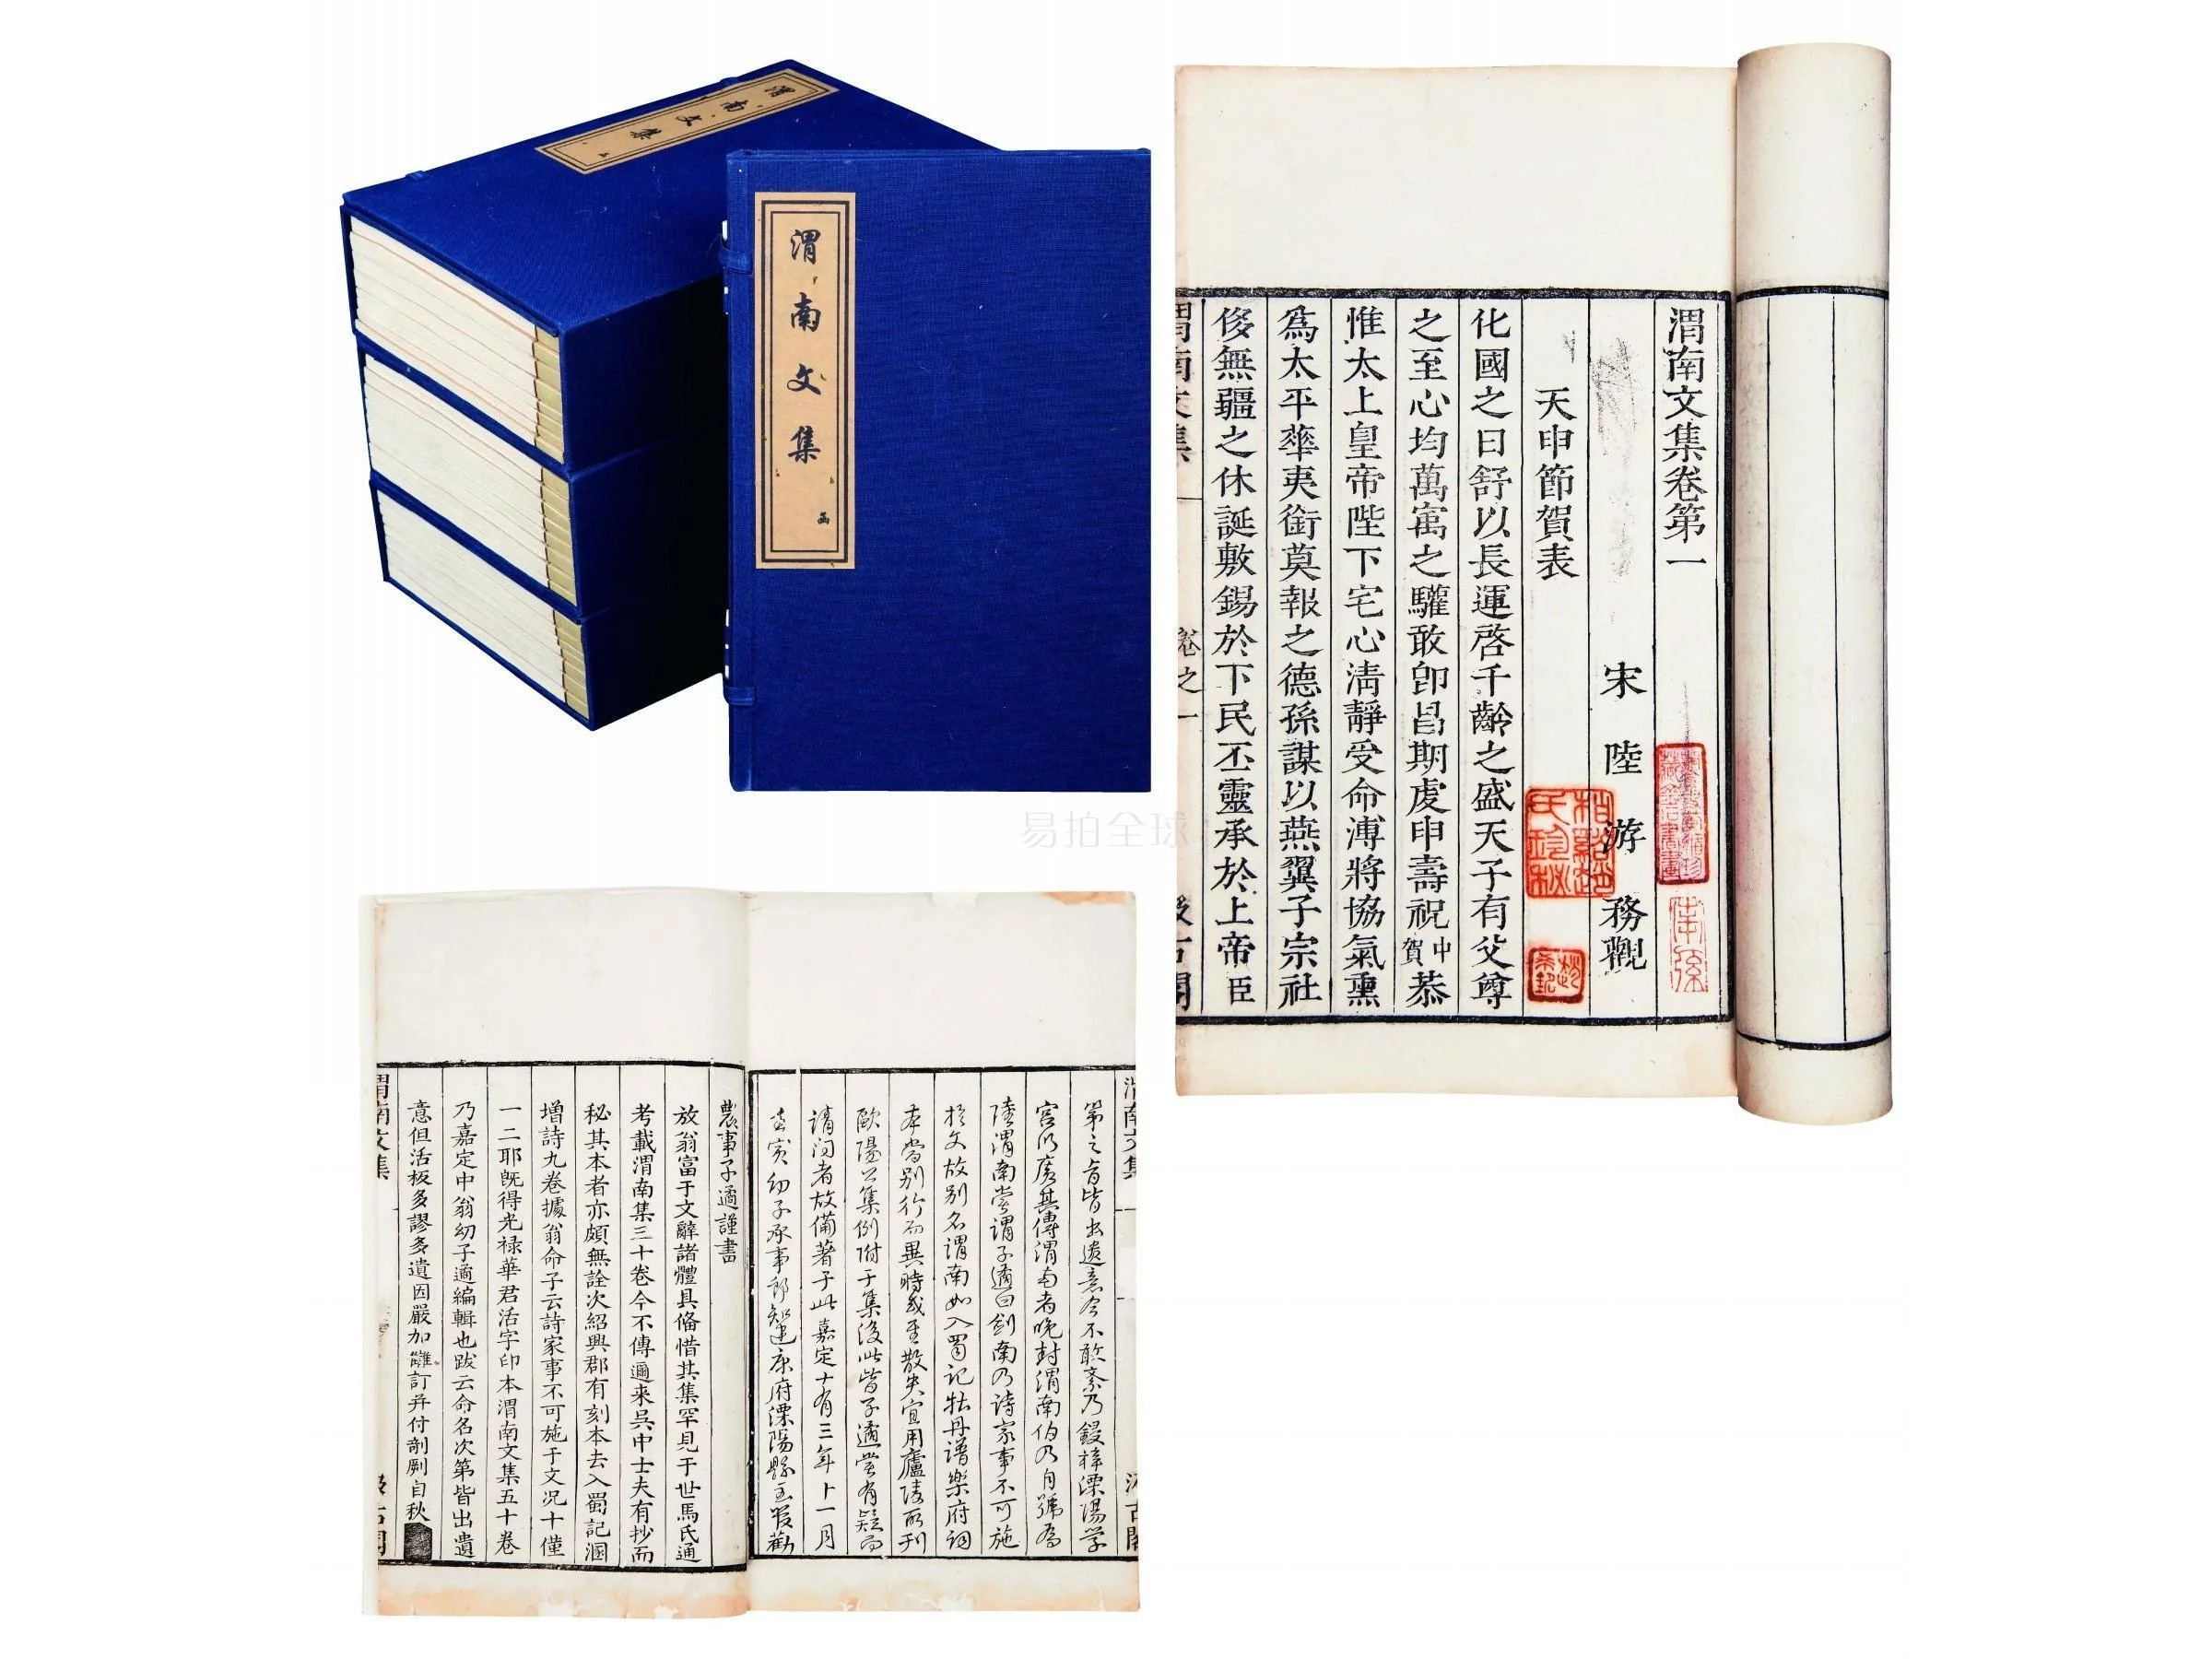 渭南文集
上
渭南文集
函
渭南文集卷第一
宋陸游務觀
天申節賀表
化國之日舒以長運啓千齡之盛天子有父尊
之至心均萬寓之驩敢卽昌期虔申壽祝中賀恭
惟太上皇帝陛下宅心淸靜受命溥將協氣熏
爲太平華夷銜莫報之德孫謀以燕翼子宗社
侈無疆之休誕敷錫於下民丕靈承於上帝臣
渭南文集
卷之一
汲古閣
易拍全球
渭南文集
汲古閣
第之旨皆出遺意今不敢紊乃鋟梓溧陽學
宮以廣其傳渭南者晚封渭南伯乃自號爲
陸渭南嘗謂子遹曰劍南乃詩家事不可施
於文故別名渭南如入蜀記牡丹譜樂府詞
本當別行而異時或至散失宜用廬陵所刊
歐陽公集例附于集後此皆子遹嘗有疑而
請問者故備著于此嘉定十有三年十一月
壬寅幼子承事郎知建康府溧陽縣主管勸
農事子遹謹書
放翁富于文辭諸體具俻惜其集罕見于世馬氏通
考載渭南集三十卷今不傳邇來吳中士夫有抄而
秘其本者亦頗無詮次紹興郡有刻本去入蜀記溷
增詩九卷據翁命子云詩家事不可施于文况十僅
一二耶旣得光禄華君活字印本渭南文集五十卷
乃嘉定中翁幼子遹編輯也跋云命名次第皆出遺
意但活板多謬多遺因嚴加讎訂幷付剞劂自秋
渭南文集
汲古閣